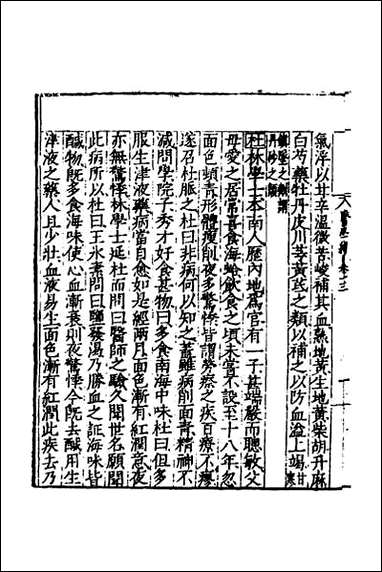 氣浮以甘辛溫微苦峻補其血熟地黃生地黃柴胡升麻
白芍藥牡丹皮川芎黃芪之類以補之以防血溢上竭甘寒
鎮墜之類謂丹砂之類
杜林學士本南人歷內地爲官有一子甚端嚴而聰敏父
母愛之居常喜食海蛤飲食之頃未嘗不設至十八年忽
面色頓青形體瘦削夜多驚悸皆謂勞瘵之疾百療不瘳
遂召杜脈之杜曰非病何以知之蓋雖病削面青精神不
減問學院子秀才好食甚物曰多食南海中味杜曰但多
服生津液藥病當自愈如是經兩月面色漸有紅潤意夜
亦無驚悸林學士延杜而問曰醫師之驗久聞世名願聞
此病所以杜曰王氷素問曰鹽發渴乃勝血之証海味皆
醎物既多食海味使心血漸衰則夜驚悸今既去醎用生
津液之藥人且少壯血液易生面色漸有紅潤此疾去乃